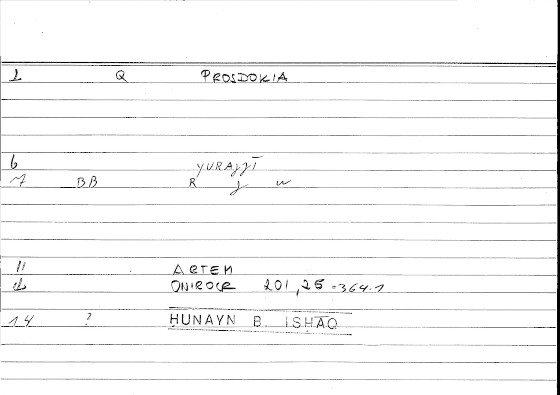 1 Q PROSDOKIA
6 YURAǦǦĪ
7 BB R ǧ w
11 ARTEM
12 ONIROCR 201,25 = 364.1
14 ? ḤUNAYN B. ISḤĀQ